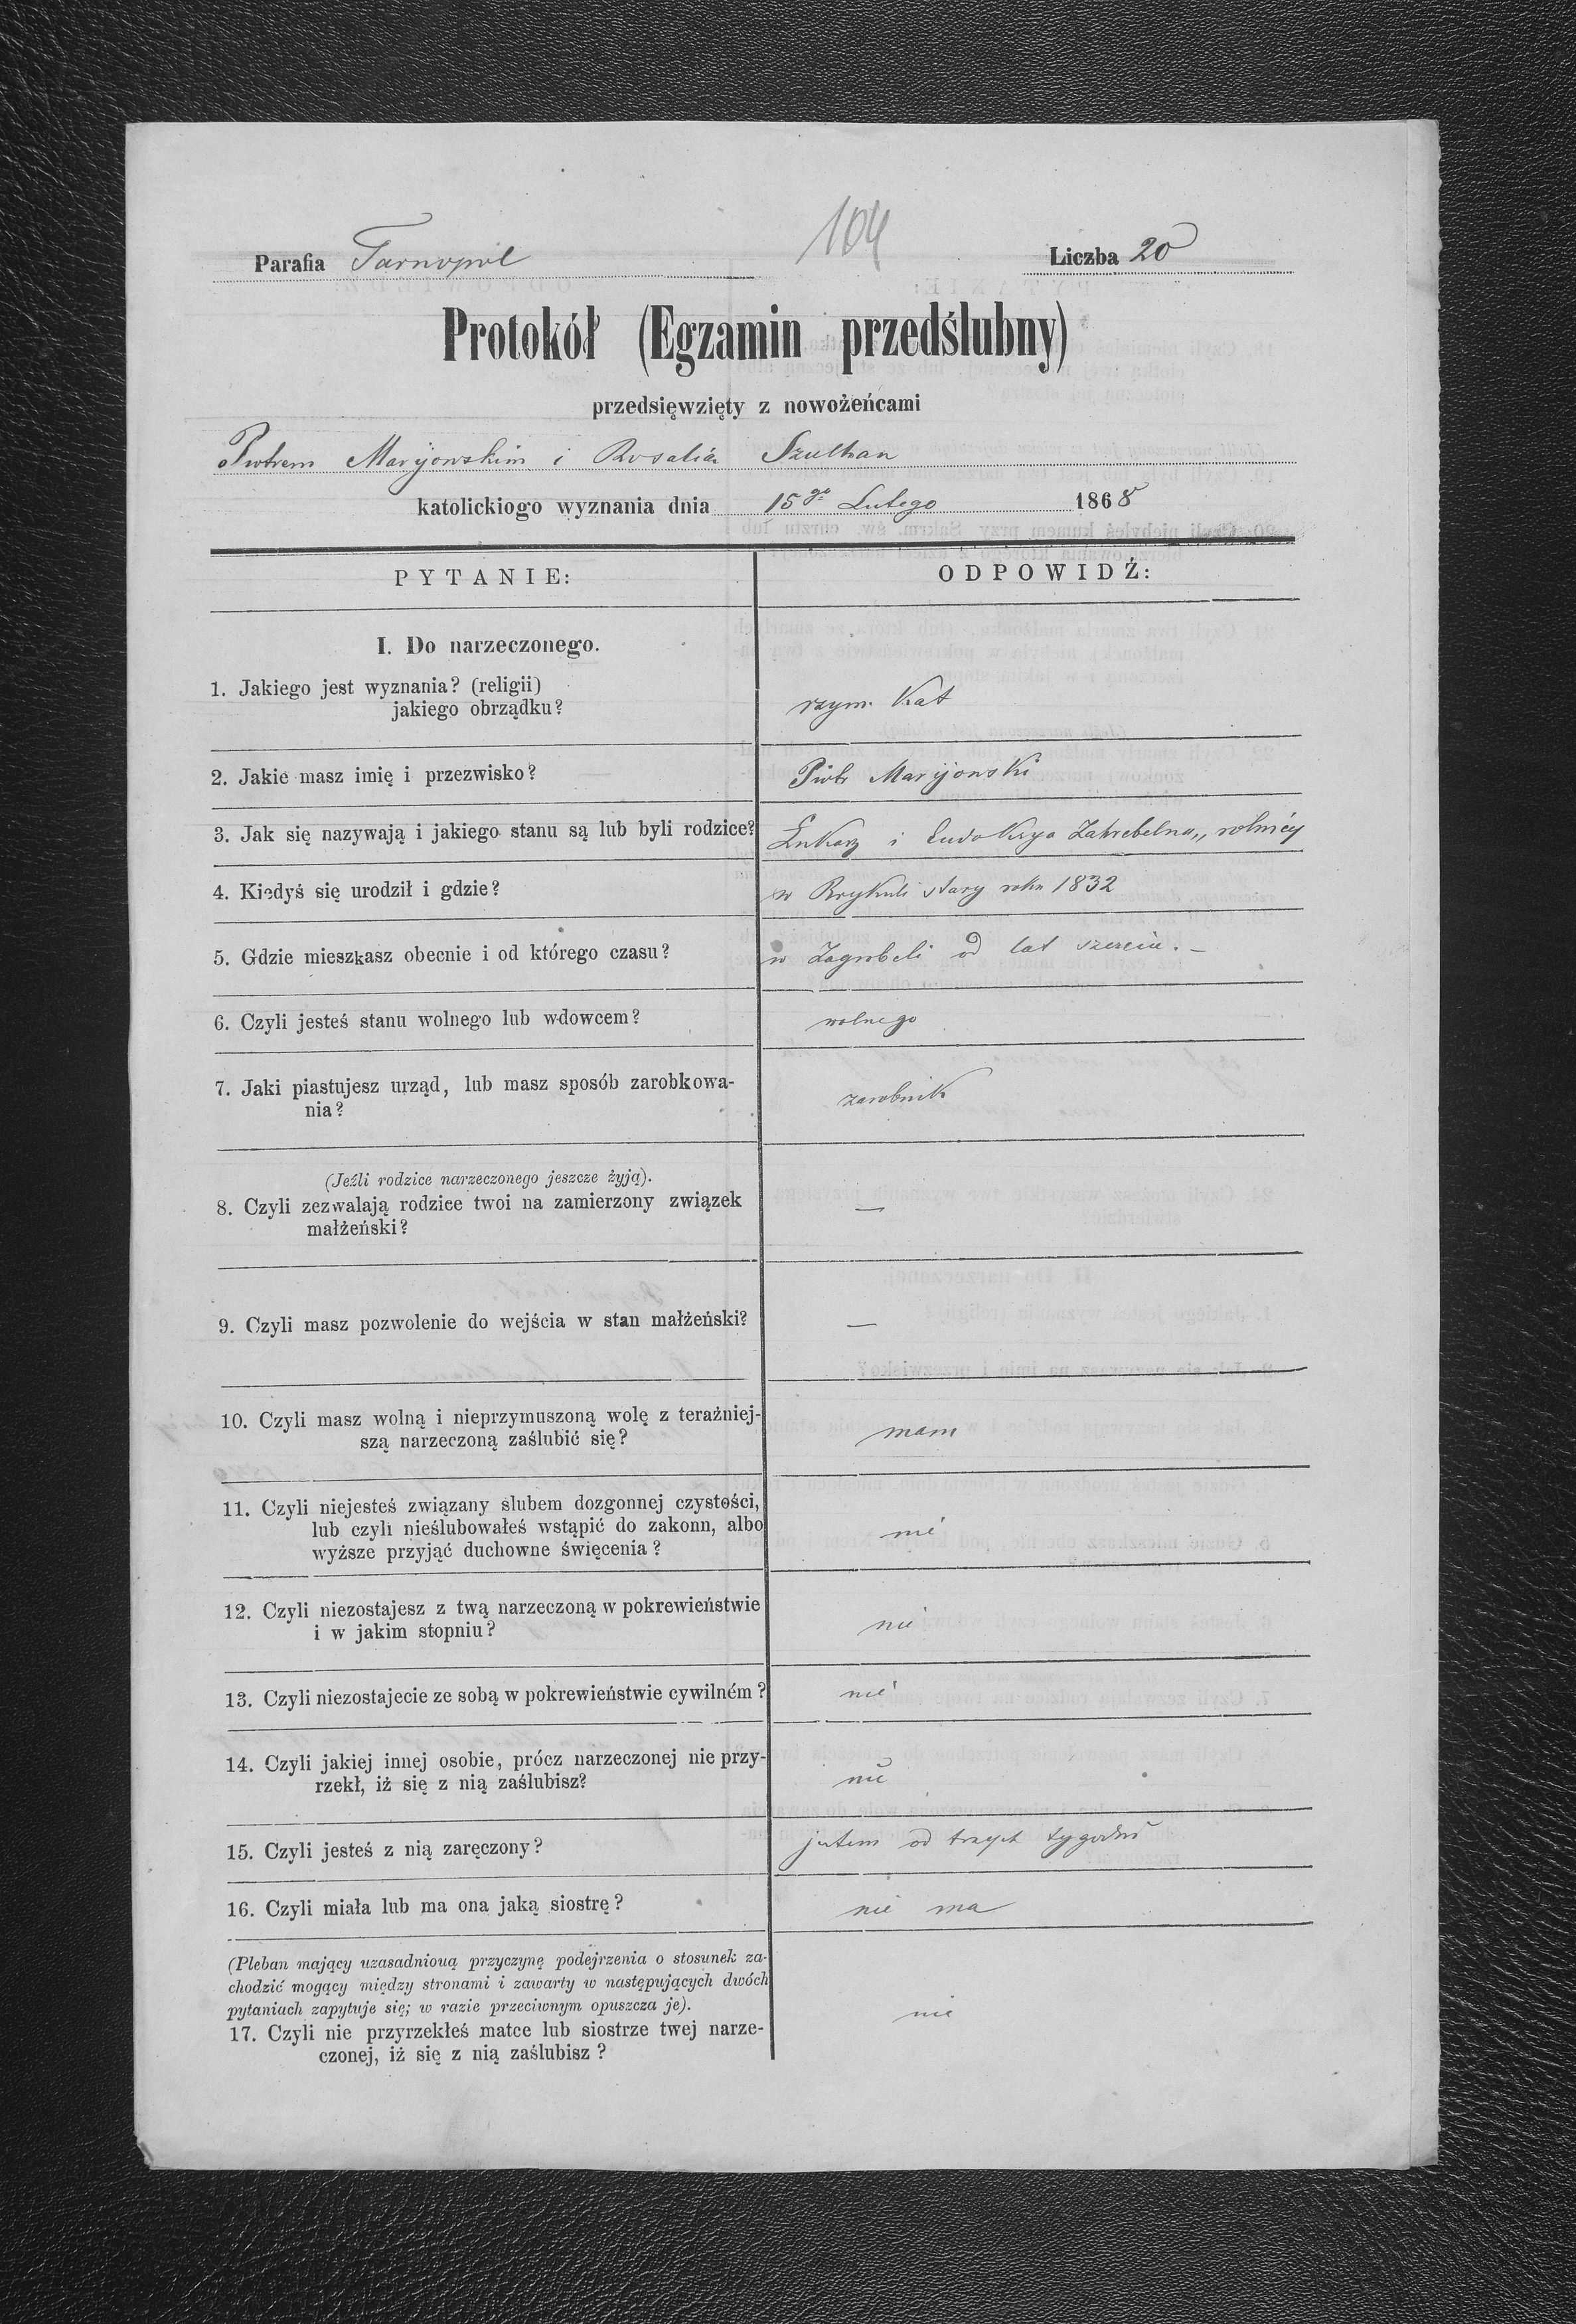 104
Parafia Tarnopol Liczba 20
Protokół (Egzamin przedślubny)
przedsięwzięty z nowożeńcami
Piotrem Maryjowskim i Rosalią Szulhan
katolickiogo wyznania dnia 15go Lutego 1868
PYTANIE: ODPOWIDŹ:
I. Do narzeczonego.
1. Jakiego jest wyznania? (religii)
jakiego obrządku? rzym. Kat
2. Jakie masz imię i przezwisko? Piotr Maryjowski
3. Jak się nazywają i jakiego stanu są lub byli rodzice? Łukasz i Eudokya Zahrebelna, rolnicy
4. Kiedyś się urodził i gdzie? w Brykuli stary roku 1832
5. Gdzie mieszkasz obecnie i od którego czasu? w Zagrobeli od lat sześciu. —
6. Czyli jesteś stanu wolnego lub wdowcem? wolnego
7. Jaki piastujesz urząd, lub masz sposób zarobkowa-
nia? zarobnik
(Jeźli rodzice narzeczonego jeszcze żyją).
8. Czyli zezwalają rodzice twoi na zamierzony związek —
małżeński?
9. Czyli masz pozwolenie do wejścia w stan małżeński? —
10. Czyli masz wolną i nieprzymuszoną wolę z teraźniej-
szą narzeczoną zaślubić się? mam
11. Czyli niejesteś związany ślubem dozgonnej czystości,
lub czyli nieślubowałeś wstąpić do zakonn, albo nie
wyższe przyjąć duchowne święcenia?
12. Czyli niezostajesz z twą narzeczoną w pokrewieństwie
i w jakim stopniu? nie
13. Czyli niezostajecie ze sobą w pokrewieństwie cywilném? nie
14. Czyli jakiej innej osobie, prócz narzeczonej nie przy-
rzekł, iż się z nią zaślubisz? nie
15. Czyli jesteś z nią zaręczony? jestem od trzech tygodni
16. Czyli miała lub ma ona jaką siostrę? nie ma
(Pleban mający uzasadnioną przyczynę podejrzenia o stosunek za-
chodzić mogący między stronami i zawarty w następujących dwóch
pytaniach zapytuje się; w razie przeciwnym opuszcza je). nie
17. Czyli nie przyrzekłeś matce lub siostrze twej narze-
czonej, iż się z nią zaślubisz?